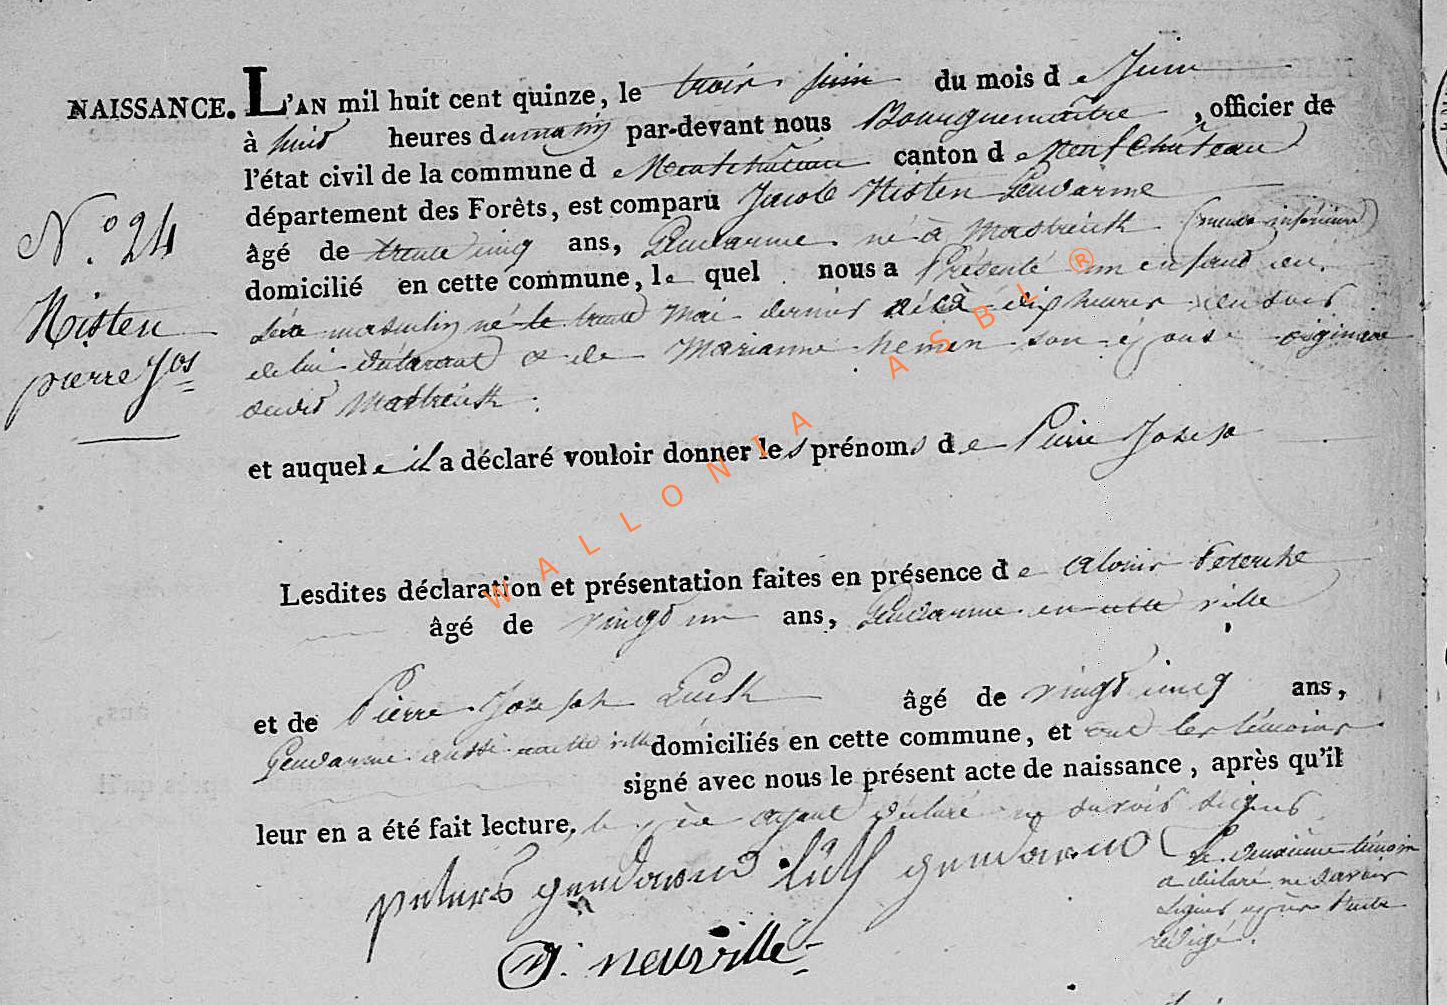 NAISSANCE. L'AN mil huit cent quinze, le trois juin du mois de Juin
à huit heures du matin par-devant nous Bourguemaitre, officier de
l'état civil de la commune de Neufchateau canton de Neufchateau
département des Forêts, est comparu Jacob Nisten Gendarme
N.° 24
âgé de trente cinq ans, Gendarme né à Mastreicht (meuse inférieure)
domicilié en cette commune, le quel nous a Présenté un enfant du
Nisten
sexe masculin né le trente Mai dernier à dix heures du soir
pierre Jos
de lui déclarant et de Marianne hemen son épouse originaire
dudit Mastreicht.
et auquel il a déclaré vouloir donner les prénoms de Pierre Joseph
Lesdites déclaration et présentation faites en présence de Alouis
âgé de vingt un ans, Gendarme en cette ville
et de Pierre Joseph âgé de vingt cinq ans,
Gendarme aussi en cette ville domiciliés en cette commune, et ont les témoins
signé avec nous le présent acte de naissance, après qu'il
leur en a été fait lecture, le père ayant déclaré ne savoir signer
peters gendarme gendarme
Le deuxième témoin
a déclaré ne savoir
signer après
rédigé.
neuville
WALLONIA ASBL ®